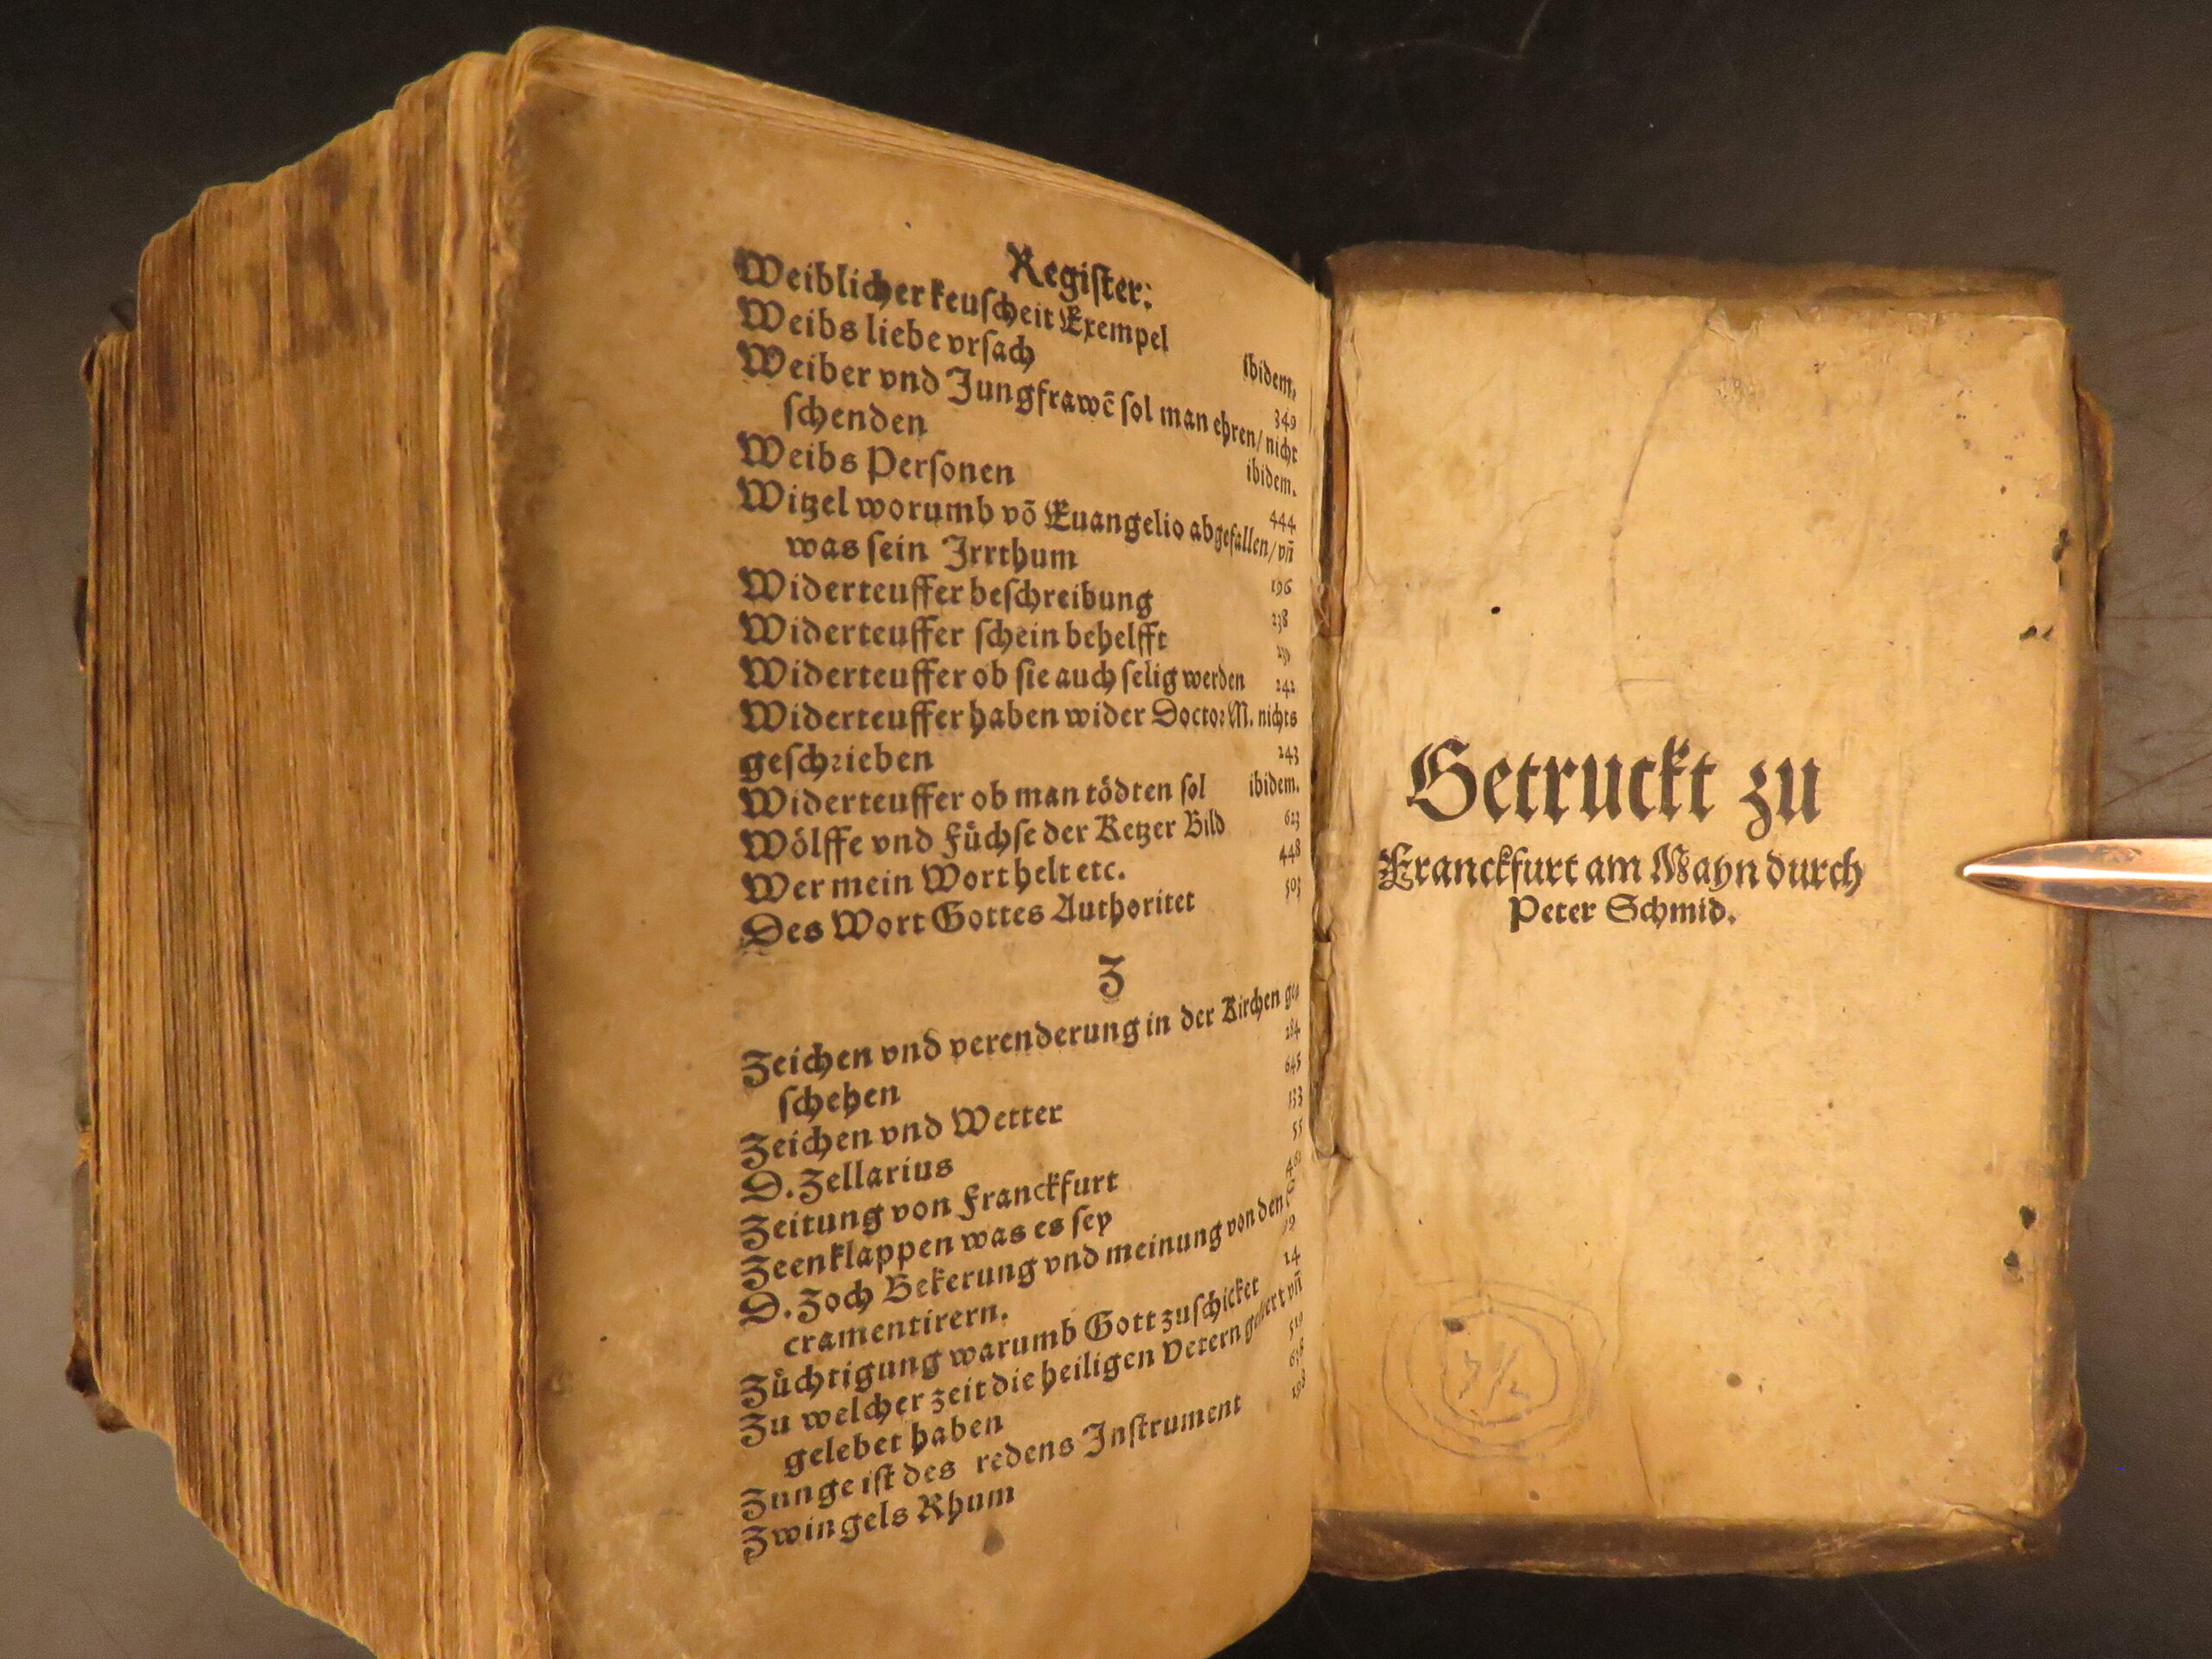 Regiſter:
Weiblicher keuſcheit Exempel ibidem.
Weibs liebe vrſach 349
Weiber vnd Jungfrawē ſol man ehren/nicht
ſchenden ibidem.
Weibs Perſonen 444
Witzel worumb võ Euangelio abgefallen/vñ
was ſein Jrrthum 196
Widerteuffer beſchreibung 238
Widerteuffer ſchein behelfft
Widerteuffer ob ſie auch ſelig werden 242
Widerteuffer haben wider Doctor M. nichts
geſchrieben 243
Widerteuffer ob man tödten ſol ibidem.
Wölffe vnd Füchſe der Ketzer Bild 623
Wer mein Wort helt etc. 448
Des Wort Gottes Authoritet 503
Z
Zeichen vnd verenderung in der Kirchen ge⸗
ſchehen 284
Zeichen vnd Wetter 645
D. Zellarius 533
Zeitung von Franckfurt 55
Zeenklappen was es ſey
D. Zoch Bekerung vnd meinung von den
cramentirern.
Züchtigung warumb Gott zuſchicket 14
Zu welcher zeit die heiligen Vetern vñ
gelebet haben
Zunge iſt des redens Inſtrument
Zwingels Rhum
Getruckt zu
Franckfurt am Mayn durch
Peter Schmid.